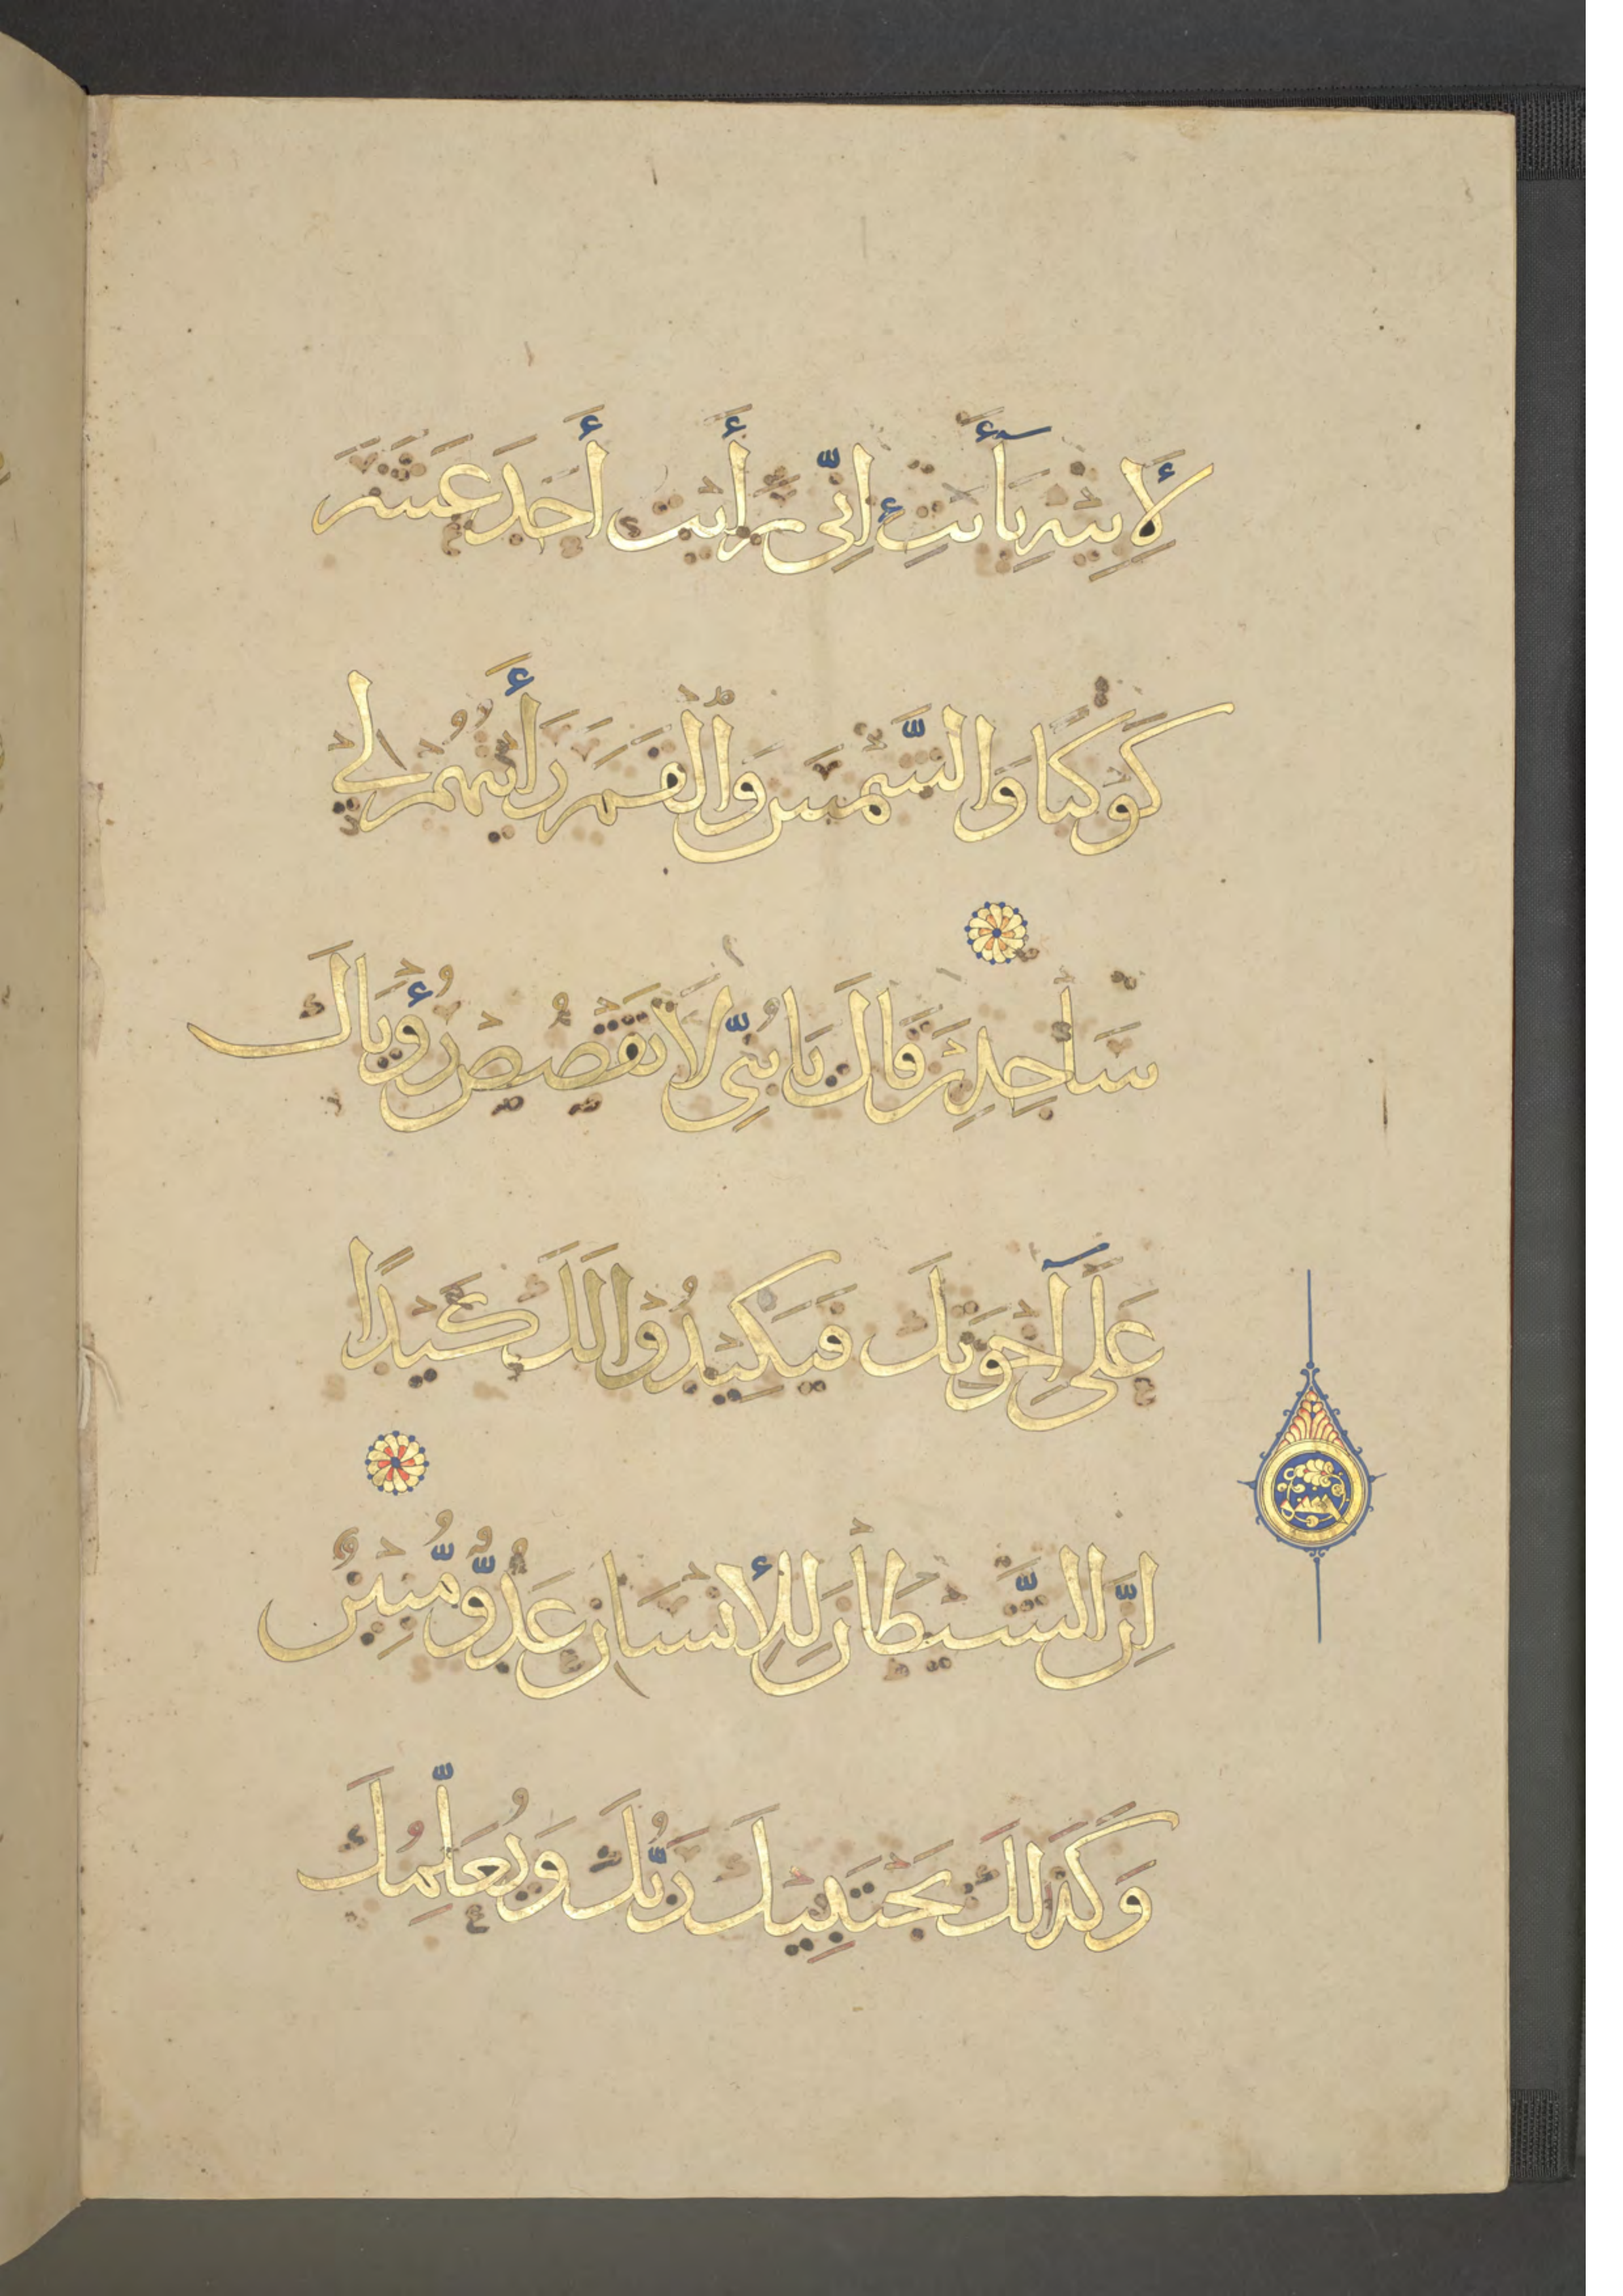 لِأَبِيهِ يَا أَبَتِ إِنِّي رَأَيْتُ أَحَدَ عَشَرَ
كَوْكَبًا وَالشَّمْسَ وَالْقَمَرَ رَأَيْتُهُمْ لِي
سَاجِدِينَ قَالَ يَا بُنَيِّ لَا تَقْصُصْ رُؤْيَاكَ
عَلَىٰ إِخْوَتِكَ فَيَكِيدُوا لَكَ كَيْدًا
إِنَّ الشَّيْطَانَ لِلْإِنْسَانِ عَدُوٌّ مُّبِينٌ
وَكَذَٰلِكَ يَجْتَبِيكَ رَبُّكَ وَيُعَلِّمُكَ